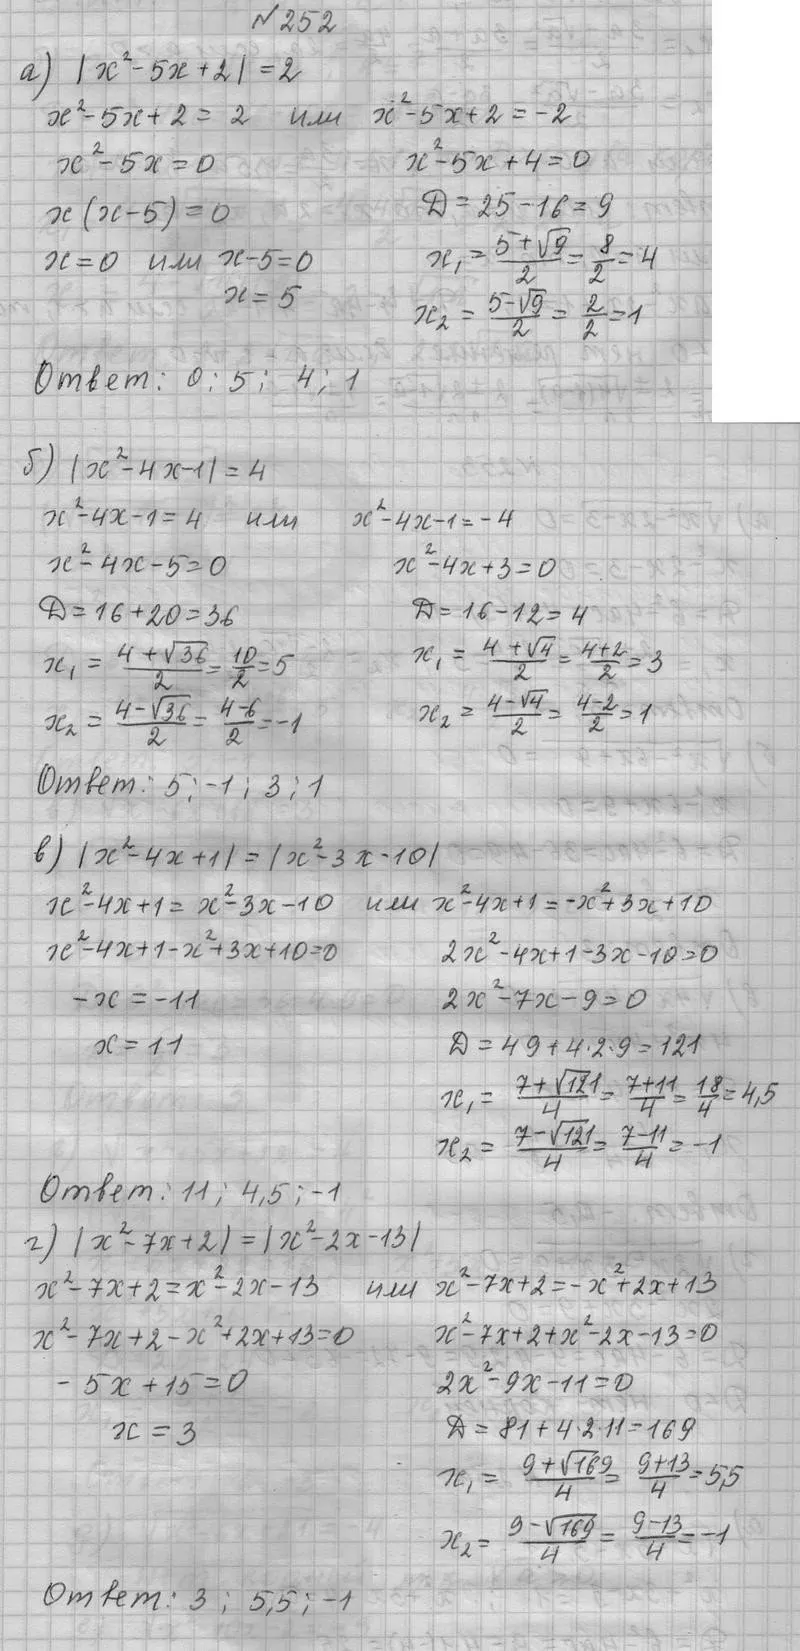 №252
а) |x²-5x+2|=2
x²-5x+2=2 или x²-5x+2=-2
x²-5x=0 x²-5x+4=0
x(x-5)=0 Д=25-16=9
x=0 или x-5=0 x₁=(5+√9)/2=8/2=4
x=5 x₂=(5-√9)/2=2/2=1
Ответ: 0; 5; 4; 1
б) |x²-4x-1|=4
x²-4x-1=4 или x²-4x-1=-4
x²-4x-5=0 x²-4x+3=0
Д=16+20=36 Д=16-12=4
x₁=(4+√36)/2=10/2=5 x₁=(4+√4)/2=(4+2)/2=3
x₂=(4-√36)/2=(4-6)/2=-1 x₂=(4-√4)/2=(4-2)/2=1
Ответ: 5; -1; 3; 1
в) |x²-4x+1|=|x²-3x-10|
x²-4x+1=x²-3x-10 или x²-4x+1=-x²+3x+10
x²-4x+1-x²+3x+10=0 2x²-4x+1-3x-10=0
-x=-11 2x²-7x-9=0
x=11 Д=49+4·2·9=121
x₁=(7+√121)/4=(7+11)/4=18/4=4,5
x₂=(7-√121)/4=(7-11)/4=-1
Ответ: 11; 4,5; -1
г) |x²-7x+2|=|x²-2x-13|
x²-7x+2=x²-2x-13 или x²-7x+2=-x²+2x+13
x²-7x+2-x²+2x+13=0 x²-7x+2+x²-2x-13=0
-5x+15=0 2x²-9x-11=0
x=3 Д=81+4·2·11=169
x₁=(9+√169)/4=(9+13)/4=5,5
x₂=(9-√169)/4=(9-13)/4=-1
Ответ: 3; 5,5; -1